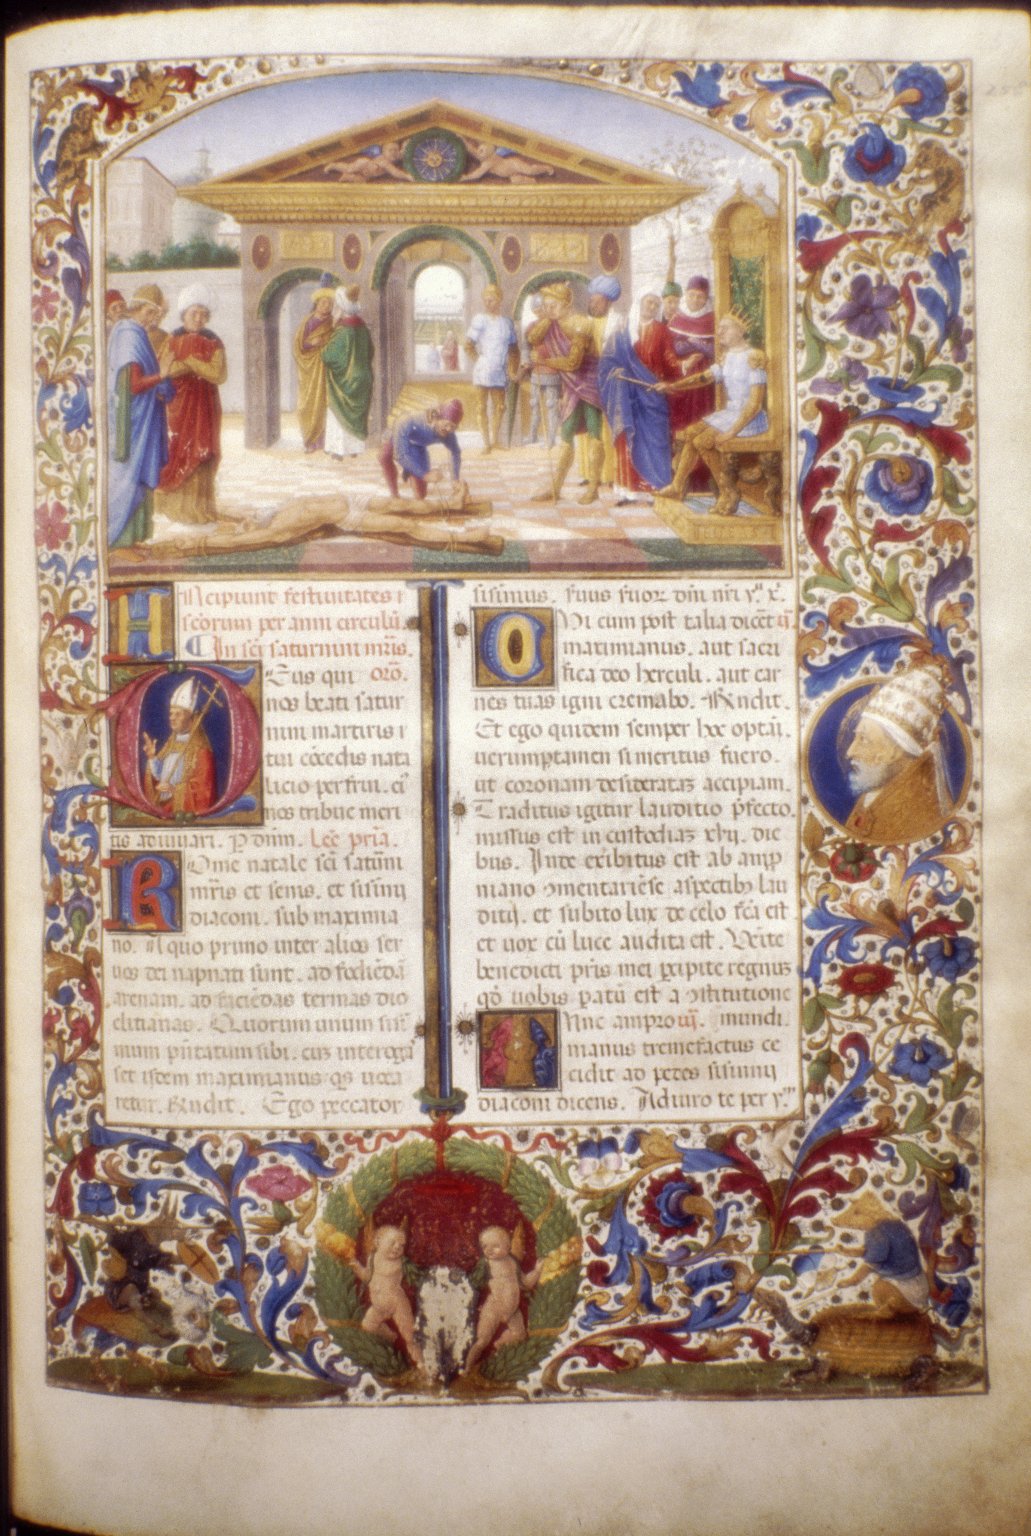 INcipiunt festiuitates
scorum per anni circulũ
In scĩ saturnini mr̃is.
Deus qui orõ.
nos beati satur
nini martiris
tui cõcedis nata
licio perfrui. eiꝰ
nos tribue meri
tis adiuuari. P dñm. Lec͂ pria.
Rome natale scĩ satũni
mr̃is et senis. et sisinij
diaconi. sub maximia
no. A quo primo inter alios ser
uos dei
arenam. ad faciẽdas termas dio
clitianas. Quorum unum
mum pñtatum sibi. cuz interoga
set idem maximianus qs
retur. Rndit. Ego peccator
sisinius. suus suoꝝ dñi nr̃i yħ xp̃.
Ni cum post talia dicẽt
maximianus. aut sacri
fica deo herculi. aut car
nes tuas igni cremabo. Rndit.
Et ego quidem semper hoc optaui.
uerumptamen si meritus fuero.
ut coronam desideratã accipiam.
Traditus igitur lauditio p̃fecto.
missus est in custodiaz xvij. die
bus. Inde exibitus est ab amp
niano aspectibꝫ lau
ditij. et subito lux de celo fc̃a est.
et uox cũ luce audita est. Venite
benedicti pr̃is mei pcipite regnuz
qđ uobis patũ est a 9stitutione
mundi.
nianus tremefactus ce
cidit ad pedes sisinnij
diaconi dicens. Adiuro te per